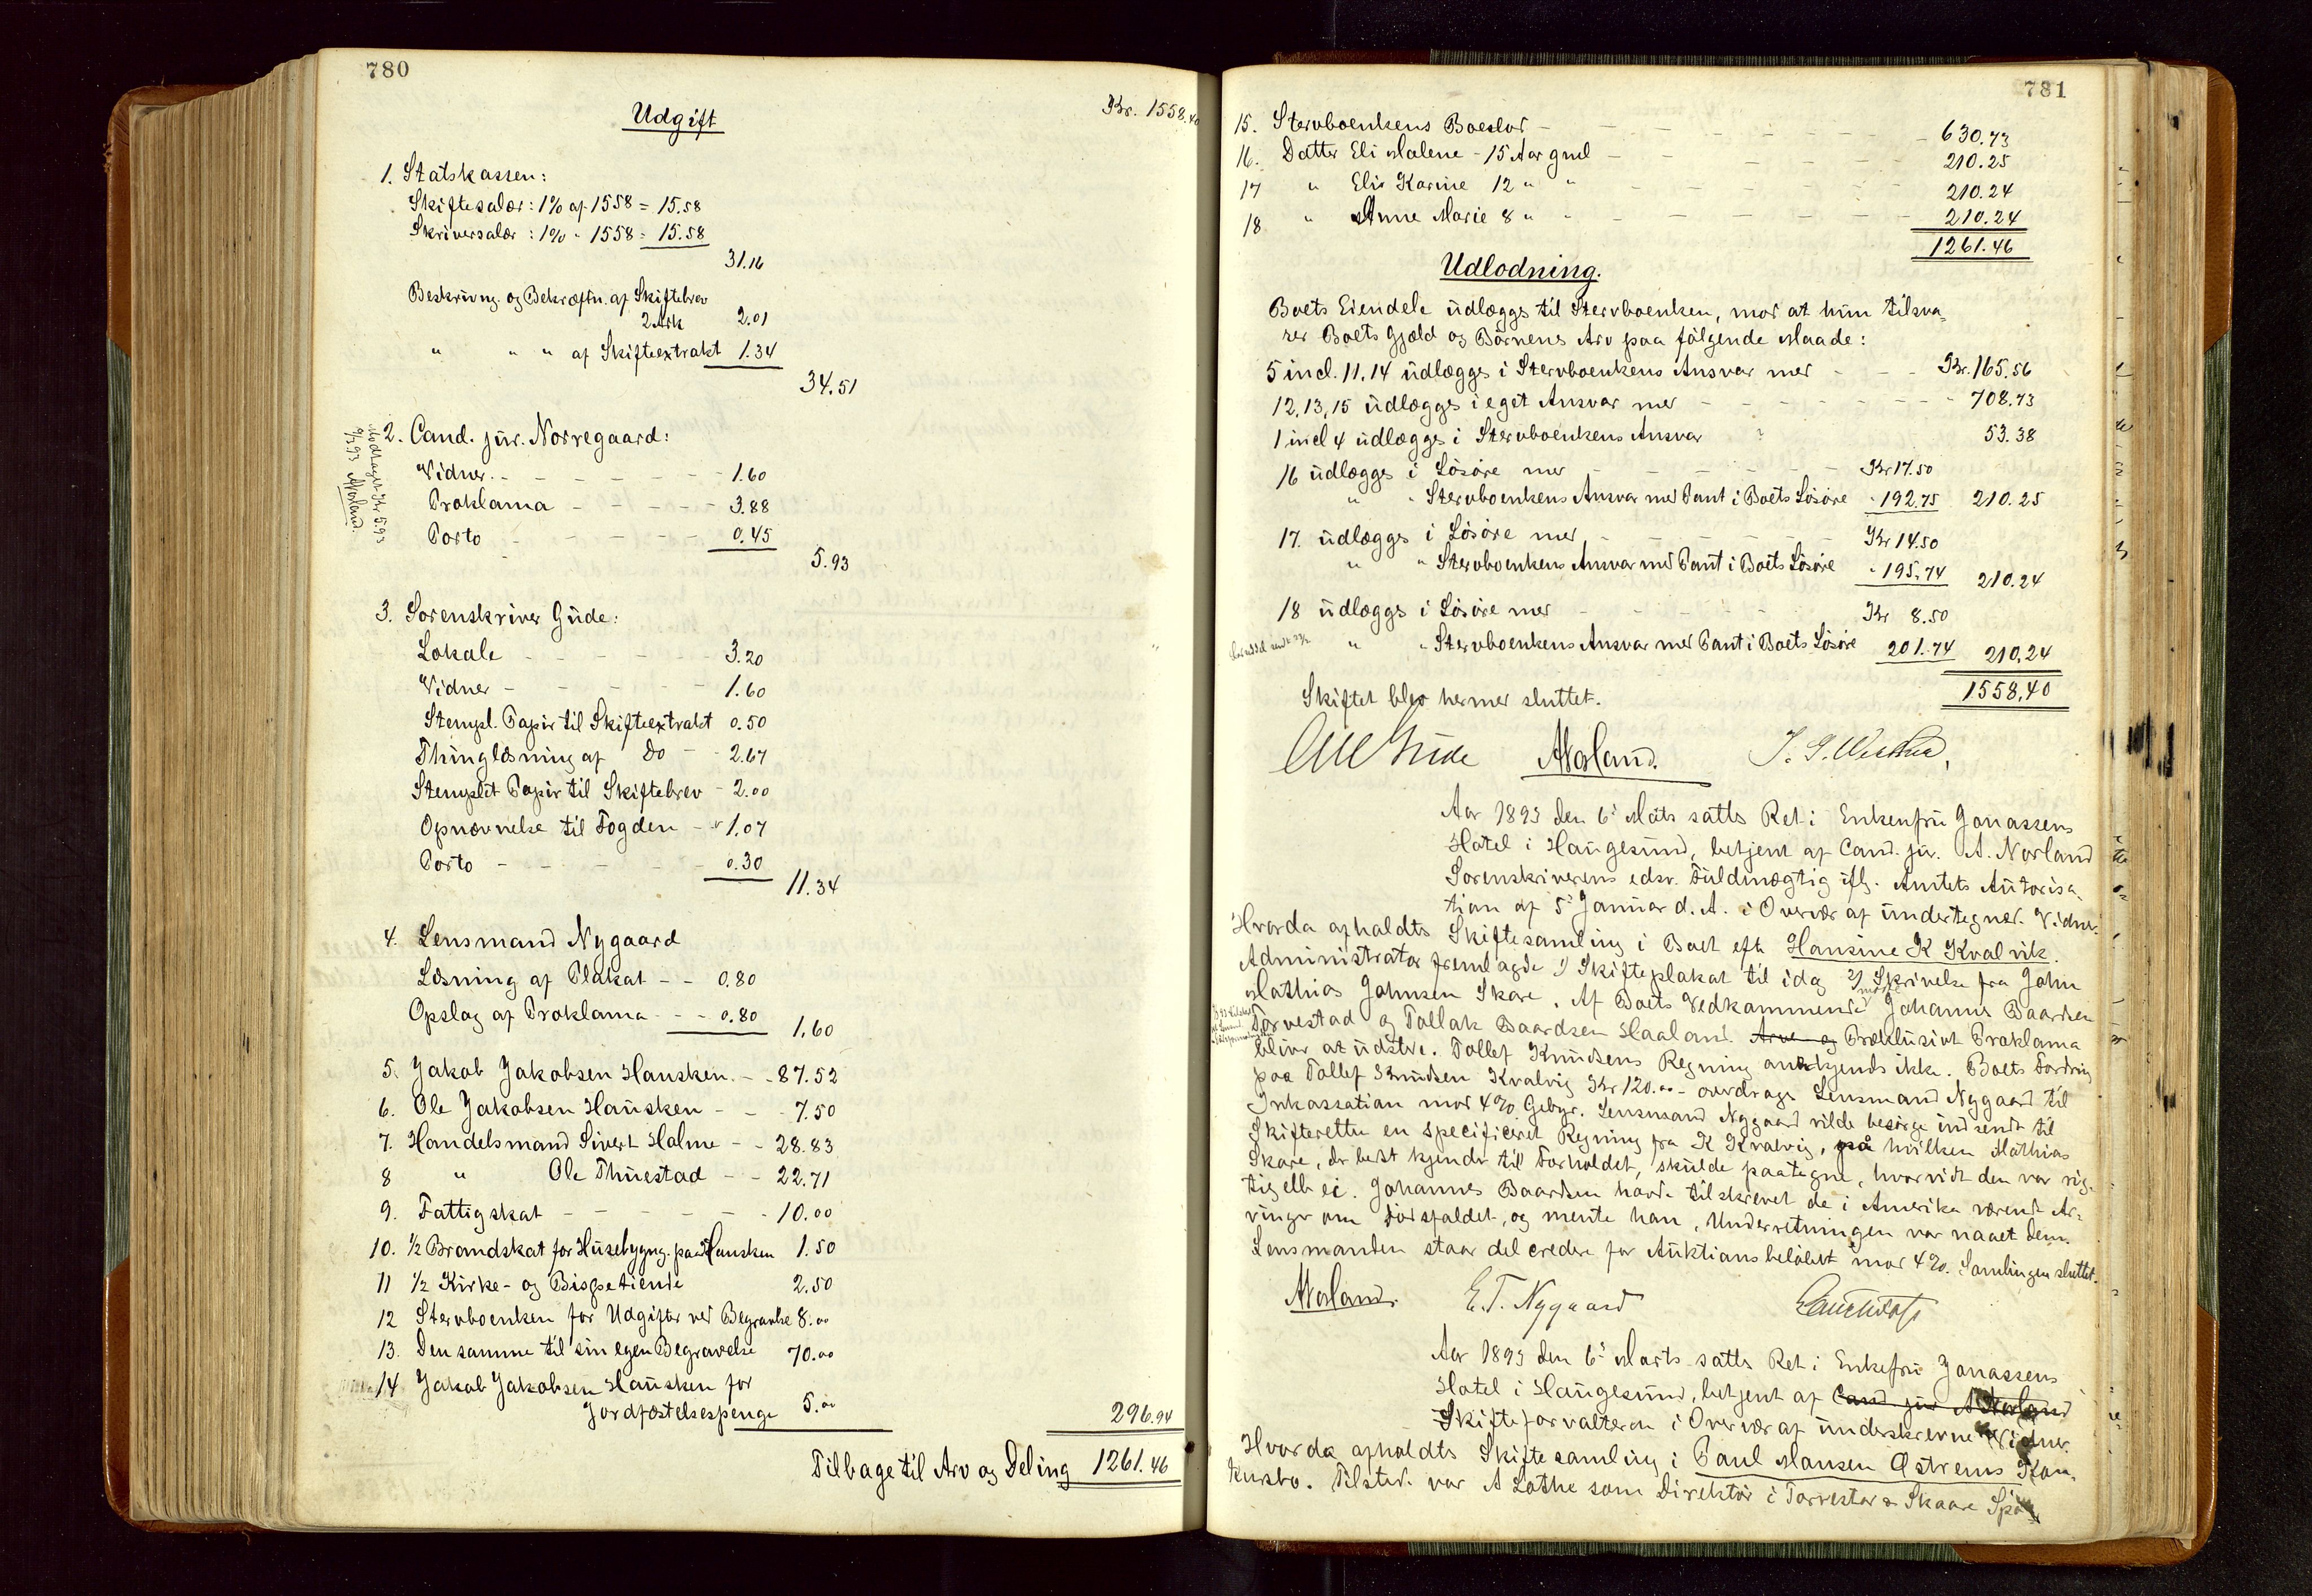 780
Udgift
Kr. 1558.40
1. Statskassen:
Skiftesalær: 1% af 1558 = 15.58
Skriversalær: 1% " 1558 = 15.58
31.16
Beskrivng. og Bekræftn. af Skiftebrev
2 Ark 2.01
" " " af Skifteextrakt 1.34
34.51
2. Cand. jur. Norregaard:
Modtaget Kr 5.93
9/3 93 ANorland.
Vidner. - - - - - 1.60
Proklama - - - - - 3.88
Porto - - - - - 0.45
5.93
3. Sorenskriver Gude:
Lokale - - - - - 3.20
Vidner - - - - - 1.60
Stempl. Papir til Skifteextrakt 0.50
Thinglæsning af Do - - 2.67
Stemplet Papir til Skiftebrev - 2.00
Opnævnelse til Fogden - - 1.07
Porto - - - - - 0.30
11.34
4. Lensmand Nygaard
Læsning af Plakat - - 0.80
Opslag af Proklama - - - 0.80
1.60
5. Jakob Jakobsen Hausken. - - 87.52
6. Ole Jakobsen Hausken - - - 7.50
7. Handelsmand Sivert Holme - - 28.83
8 " Ole Thuestad - - 22.71
9. Fattigskat - - - - - - 10.00
10. 1/2 Brandskat for Husebygng. paa Hausken 1.50
11 1/2 Kirke- og Bispetiende 2.50
12 Stervboenken for Udgifter ved Begravelse 8.00
13. Den samme til sin egen Begravelse 70.00
14 Jakob Jakobsen Hausken for
Jordfæstelsespenge 5.00
296.94
Tilbage til Arv og Deling 1261.46
781
15. Stervboenkens Boeslod - - - - - 630.73
16. Datter Eli Malene - 15 Aar gml - - - 210.25
17 " Elis Karine 12 " " - - - 210.24
18 " Anne Marie 8 " " - - - 210.24
1261.46
Udlodning.
Boets Eiendele udlægges til Stervboenken, mod at hun tilsva-
rer Boets Gjæld og Børnenes Arv paa følgende Maade:
5 incl. 11, 14 udlægges i Stervboenkens Ansvar med - - - Kr. 165.56
12, 13, 15 udlægges i eget Ansvar med - - - - - 708.73
1 incl 4 udlægges i Stervboenkens Ansvar 53.38
16 udlægges i Løsøre med - - - - - Kr 17.50
" " Stervboenkens Ansvar med Pant i Boets Løsøre " 192.75 210.25
17. udlægges i Løsøre med - - - - Kr 14.50
" " Stervboenkens Ansvar med Pant i Boets Løsøre " 195.74 210.24
18 udlægges i Løsøre med - - - - Kr 8.50
" " Stervboenkens Ansvar med Pant i Boets Løsøre 201.74 210.24
1558.40
Skiftet blev hermed sluttet.
Gude ANorland.
Aar 1893 den 6' Mats sattes Ret i Enkenfru Jonassens
Hotel i Haugesund, betjent af Cand. jur. A. Norland
Sorenskriverens edsv. Fuldmægtig iflg. Amtets Autorisa-
tion af 5' Januar d. A. i Overvær af undertegned. Vidner.
Hvorda afholdtes Skiftesamling i Boet eft Hansine K Kvalvik.
Administrator fremlagde 1) Skifteplakat til idag 2) Skrivelse fra John
Mathias Johnsen Skare. Af Boets Vedkommende mødte Johannes Baardsen
Torvestad og Tollak Baardsen Haaland. Arve- og Præklusivt Proklama
bliver at udstede. Tollef Knudsens Regning anerkjends ikke. Boets Fordring
paa Tollef Knudsen Kvalvig Kr 120.00 - overdrages Lensmand Nygaard til
Inkassation mod 4% Gebyr. Lensmand Nygaard vilde besørge indsendt til
Skifteretten en specificeret Regning fra K Kvalvig, på hvilken Mathias
Skare, der bedst kjender til Forholdet, skulde paategne, hvorvidt den var rig-
tig ell. ei. Johannes Baardsen havde tilskrevet de i Amerika værende Ar-
vinger om Dødsfaldet, og mente han, Underretningen var naaet dem.
Lensmanden staar del credere for Auktionsbeløbet mod 4%. Samlingen sluttet.
ANorland. E. T. Nygaard
Aar 1893 den 6' Marts sattes Ret i Enkefru Jonassens
Hotel i Haugesund, betjent af Cand jur A Norland
Skifteforvalteren i Overvær af underskrevne Vidner.
Hvorda afholdtes Skiftesamling i Paul Hansen Østrems Kon-
kursbo. Tilsted. var A Lothe som Direktør i Torvestad & Skaare Spa